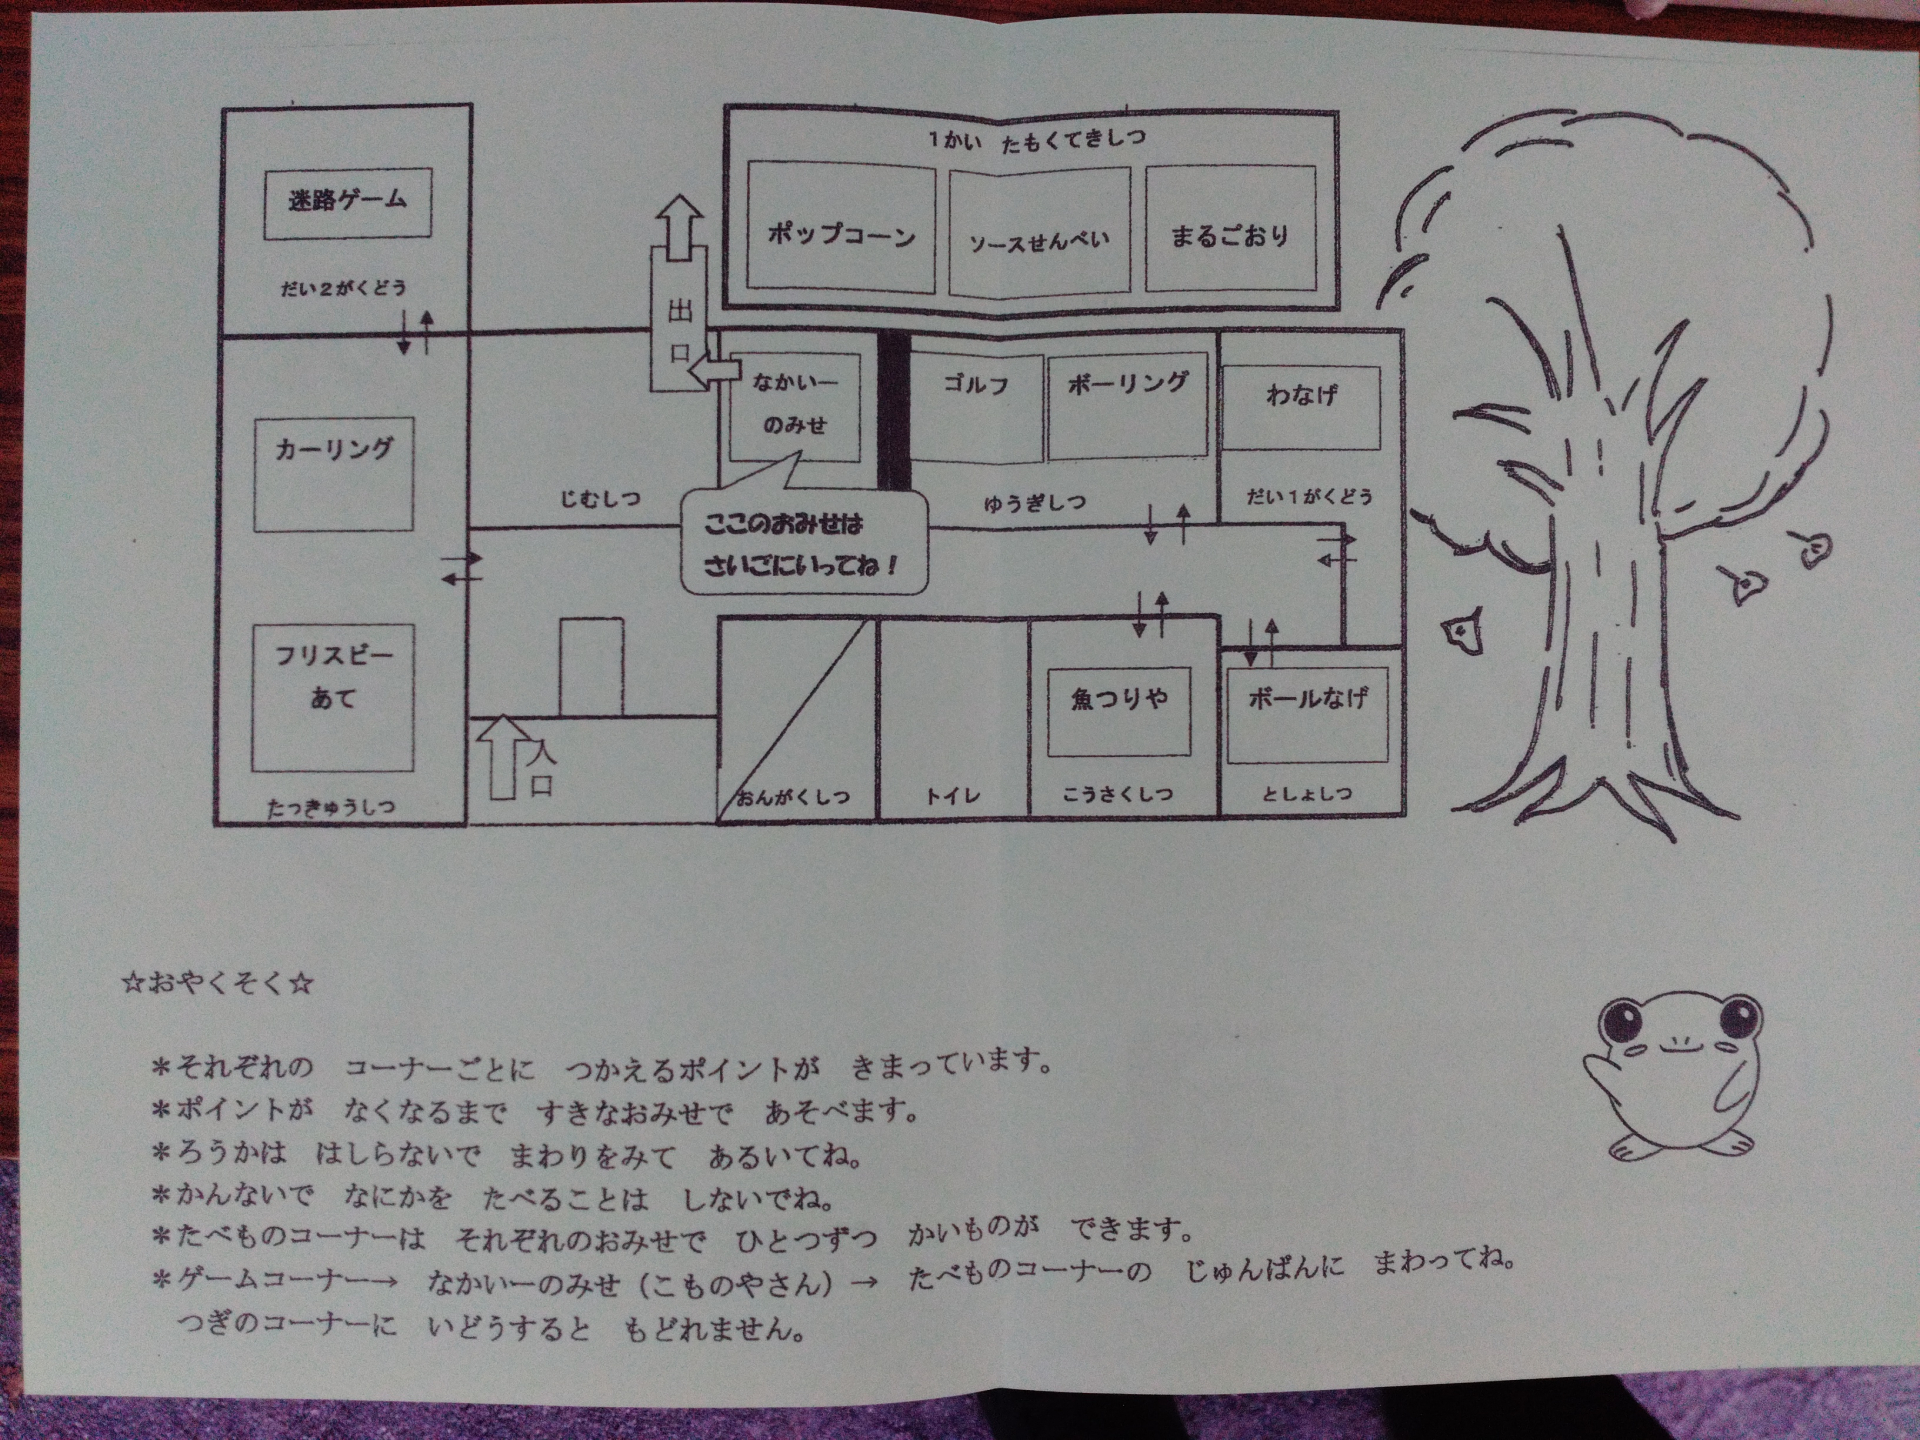 迷路ゲーム
だい２がくどう
カーリング
フリスビー
あて
たっきゅうしつ
１かい　たもくてきしつ
ポップコーン
ソースせんべい
まるごおり
出
口
なかいー
のみせ
ゴルフ
ボーリング
わなげ
じむしつ
ゆうぎしつ
だい１がくどう
ここのおみせは
さいごにいってね！
入
口
おんがくしつ
トイレ
魚つりや
こうさくしつ
ボールなげ
としょしつ
☆おやくそく☆
＊それぞれの　コーナーごとに　つかえるポイントが　きまっています。
＊ポイントが　なくなるまで　すきなおみせで　あそべます。
＊ろうかは　はしらないで　まわりをみて　あるいてね。
＊かんないで　なにかを　たべることは　しないでね。
＊たべものコーナーは　それぞれのおみせで　ひとつずつ　かいものが　できます。
＊ゲームコーナー→　なかいーのみせ（こものやさん）→　たべものコーナーの　じゅんばんに　まわってね。
つぎのコーナーに　いどうすると　もどれません。